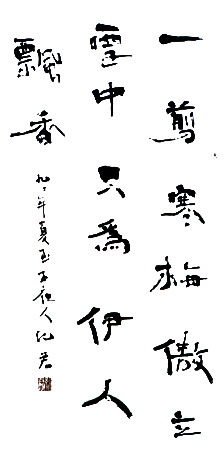 一剪寒梅傲立
雪中只為伊人
飄香
九二年夏玉石夜人化君